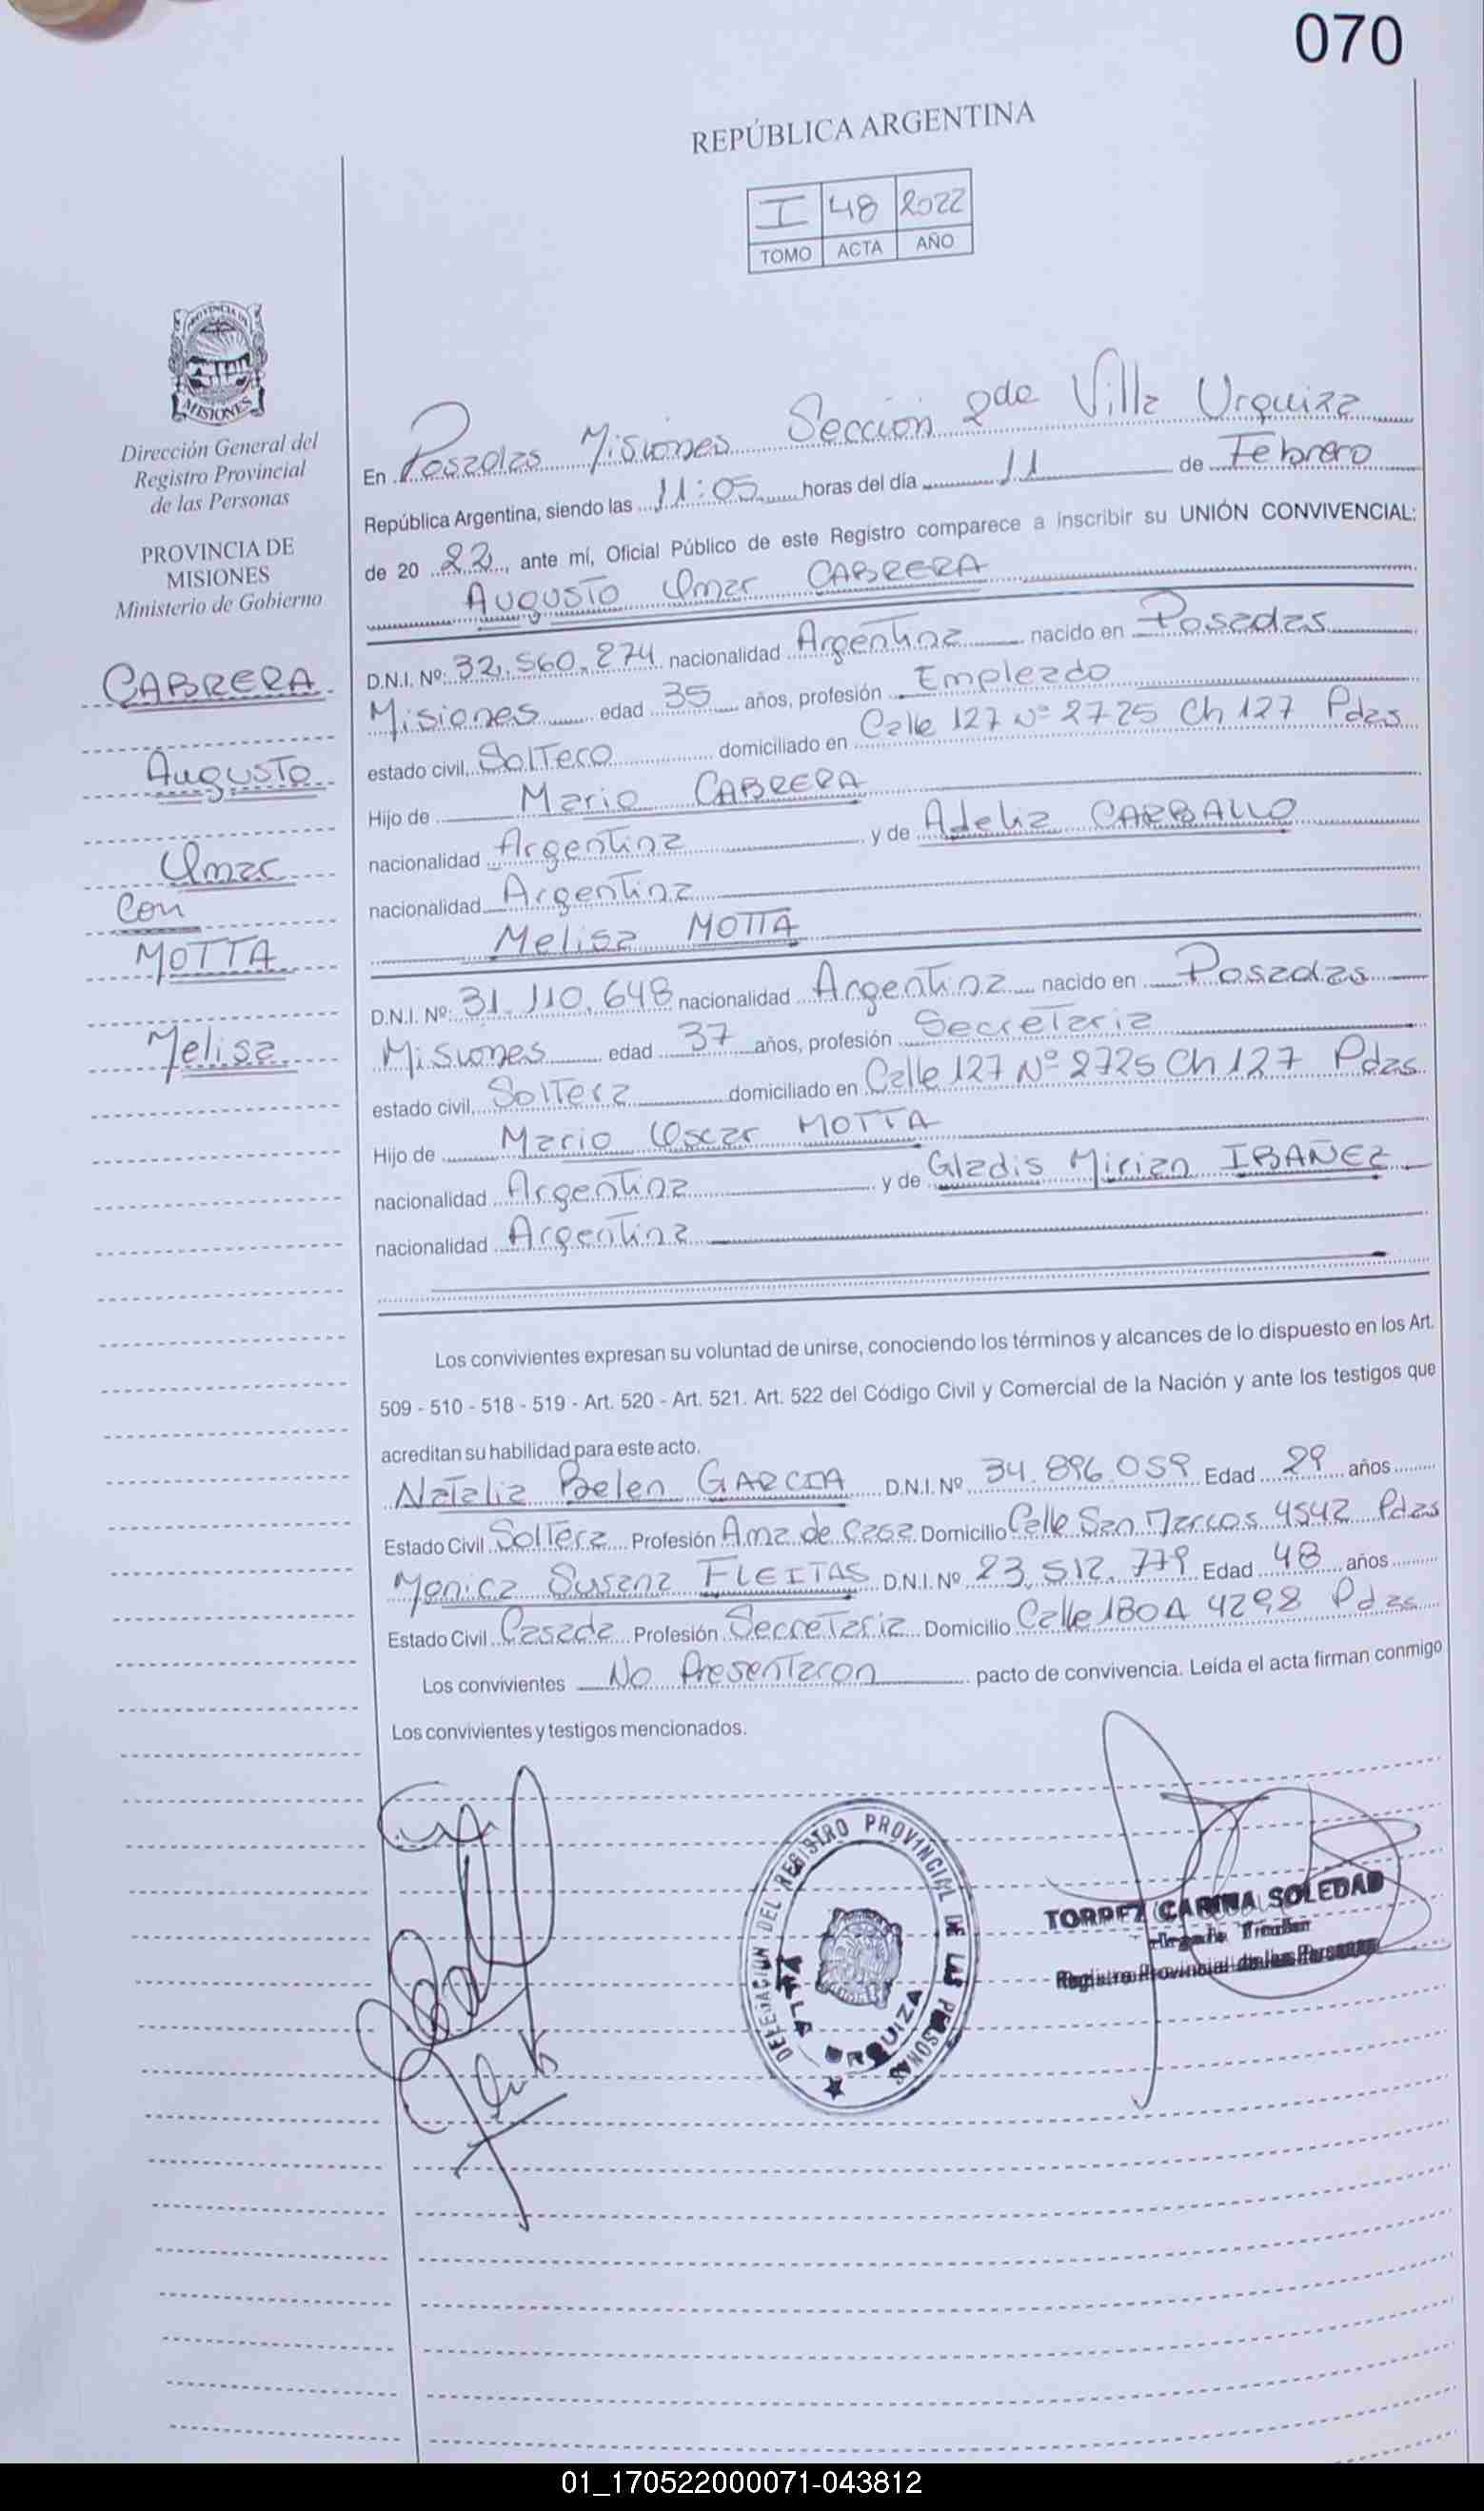 070
REPÚBLICA ARGENTINA
I 48 2022
TOMO ACTA AÑO
PROVINCIA DE
MISIONES
Dirección General del
Registro Provincial
de las Personas
PROVINCIA DE
MISIONES
Ministerio de Gobierno
CABRERA
Augusto
Omar
Con
MOTTA
Melisa
En Posadas Misiones Sección 2da Villa Urquiza
República Argentina, siendo las 11:05 horas del día 11 de Febrero
de 20 22, ante mí, Oficial Público de este Registro comparece a inscribir su UNIÓN CONVIVENCIAL:
Augusto Omar CABRERA
D.N.I. Nº: 32.560.274 nacionalidad Argentina nacido en Posadas
Misiones edad 35 años, profesión Empleado
estado civil, Soltero domiciliado en Calle 127 Nº 2725 Ch 127 Pdas
Hijo de Mario CABRERA
nacionalidad Argentina y de Adelia CARBALLO
nacionalidad Argentina
Melisa MOTTA
D.N.I. Nº: 31.110.648 nacionalidad Argentina nacido en Posadas
Misiones edad 37 años, profesión Secretaria
estado civil, Soltera domiciliado en Calle 127 Nº 2725 Ch 127 Pdas
Hijo de Mario Oscar MOTTA
nacionalidad Argentina y de Gladis Mirian IBAÑEZ
nacionalidad Argentina
Los convivientes expresan su voluntad de unirse, conociendo los términos y alcances de lo dispuesto en los Art.
509 - 510 - 518 - 519 - Art. 520 - Art. 521. Art. 522 del Código Civil y Comercial de la Nación y ante los testigos que
acreditan su habilidad para este acto.
Natalia Belen GARCIA D.N.I. Nº 34.896.059 Edad 29 años
Estado Civil Soltera Profesión Ama de Casa Domicilio Calle San Marcos 4542 Pdas
Monica Susana FLEITAS D.N.I. Nº 23.512.779 Edad 48 años
Estado Civil Casada Profesión Secretaria Domicilio Calle 180A 4298 Pdas
Los convivientes No Presentaron pacto de convivencia. Leída el acta firman conmigo
Los convivientes y testigos mencionados.
DELEGACION DEL REGISTRO PROVINCIAL DE LAS PERSONAS
VILLA URQUIZA
TORREZ CARINA SOLEDAD
Registro Provincial de las Personas
01_170522000071-043812